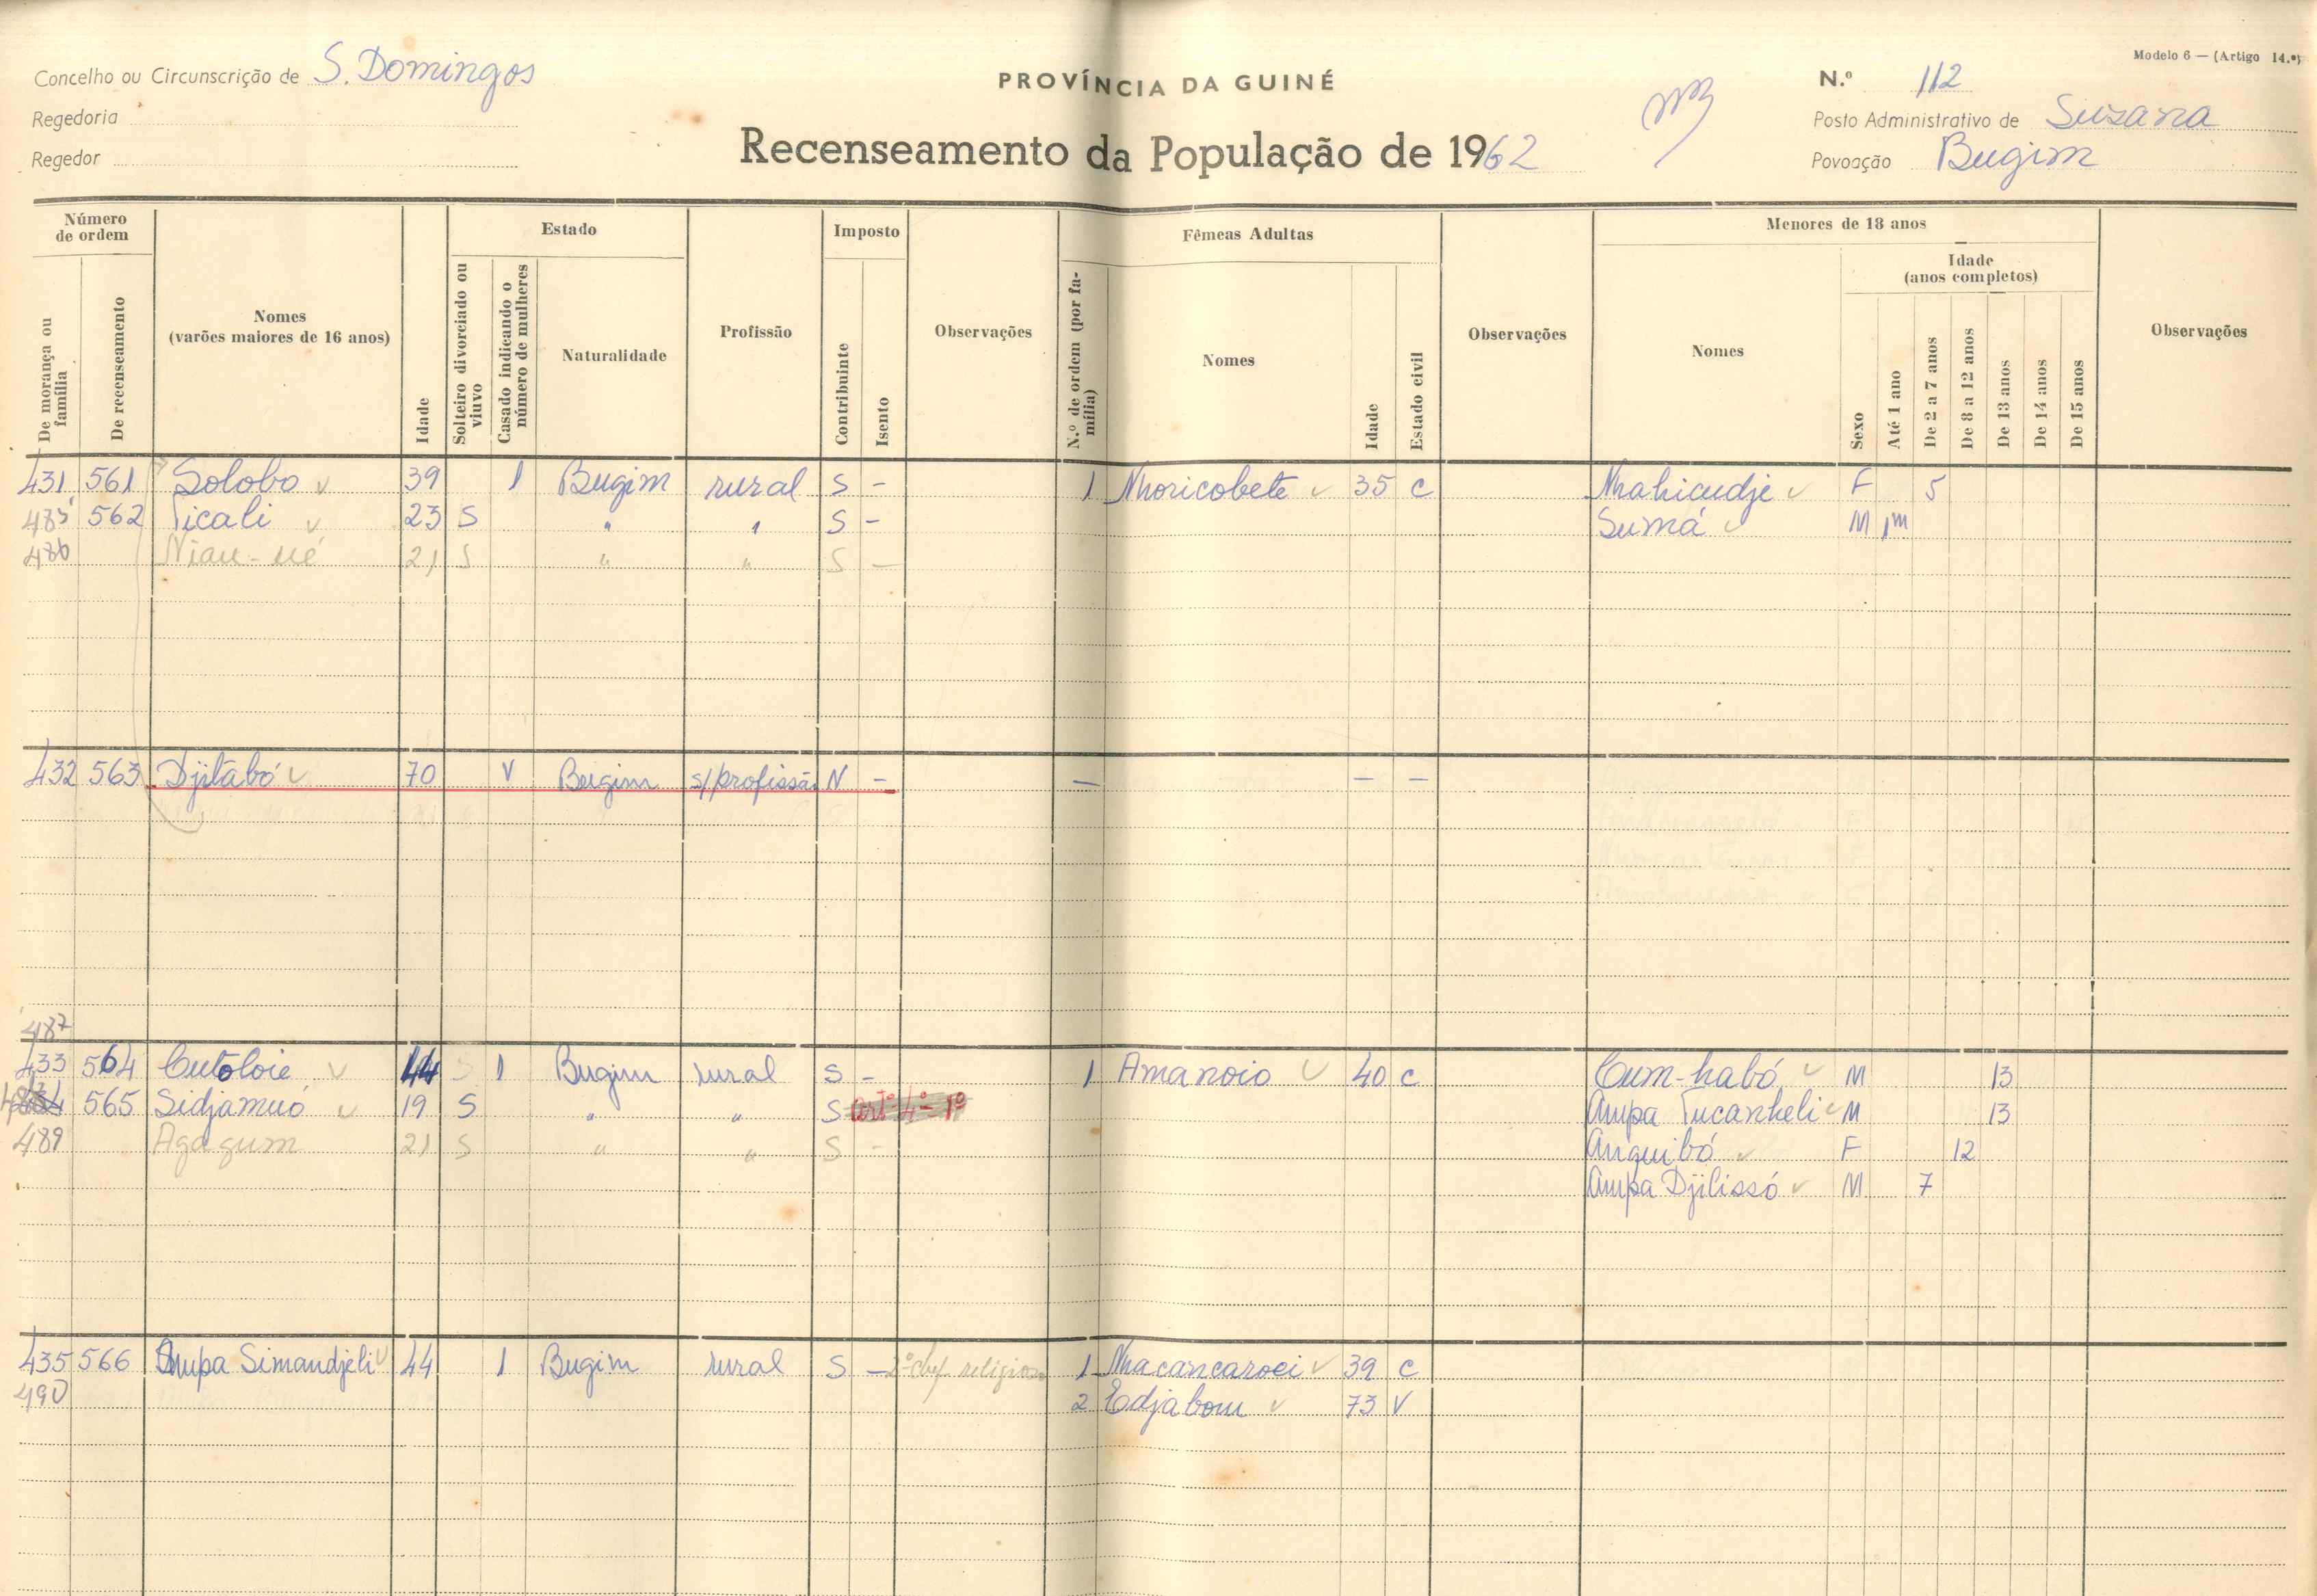 Modelo 6 — (Artigo 14.º)
Concelho ou Circunscrição de S. Domingos
PROVÍNCIA DA GUINÉ
N.º 112
Regedoria
Posto Administrativo de Suzana
Regedor
Recenseamento da População de 1962
Povoação Bugim
Número de ordem
De morança ou família
De recenseamento
Nomes
(varões maiores de 16 anos)
Idade
Estado
Solteiro divorciado ou viuvo
Casado indicando o número de mulheres
Naturalidade
Profissão
Imposto
Contribuinte
Isento
Observações
Fêmeas Adultas
N.º de ordem (por família)
Nomes
Idade
Estado civil
Observações
Menores de 18 anos
Nomes
Sexo
Idade
(anos completos)
Até 1 ano
De 2 a 7 anos
De 8 a 12 anos
De 13 anos
De 14 anos
De 15 anos
Observações
431 561 Solobo 39 1 Bugim rural S - 1 Nhoricobete 35 c Nhahicudje F 5
485 562 Ticali 23 S " " S - Sumá M 1m
486 Niau-ué 21 S " " S —
432 563 Djitabó 70 V Bugim s/profissão N - — — —
487
433 564 Cutoloié 44 1 Bugim rural S - 1 Amanoio 40 c Cum-habó M 13
565 Sidjamuó 19 S " " S artº 4º 1º Ampa Tucanheli M 13
489 Agagum 21 S " " S - Anquibó F 12
Ampa Djilissó M 7
435 566 Ampa Simandjeli 44 1 Bugim rural S — 2º chef. religioso 1 Nhacancaroei 39 c
490 2 Edjabom 73 V